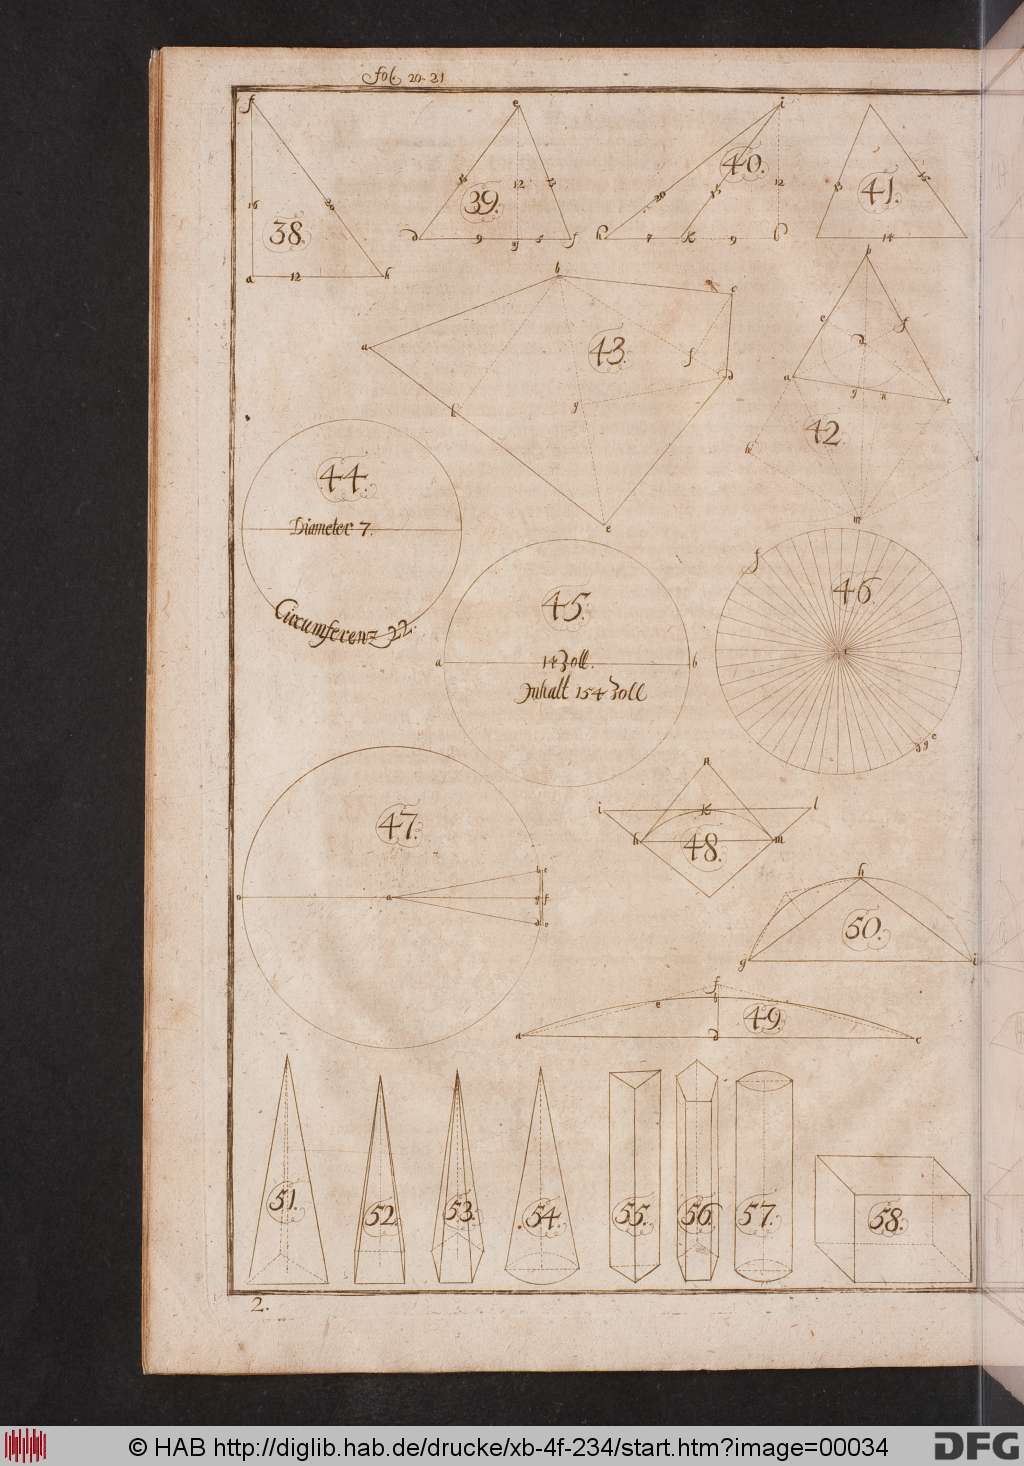 fol. 20-21
f 16 20 38. a 12 h
e 15 12 13 39. d 9 g 5 f
i 40. 20 15 12 h 7 k 9 b
41. 13 15 14
b c a 43. f d l g e
b e f d a g n c 42. h i m
44.
Diameter 7.
Circumferenz 22.
45.
a 14 Zoll. b
Inhalt 154 Zoll
f 46. c e
47. a
n i k l h m 48.
h 50. g i
f b e 49. a d c
51. 52. 53. 54. 55. 56. 57. 58.
2.
© HAB http://diglib.hab.de/drucke/xb-4f-234/start.htm?image=00034 DFG